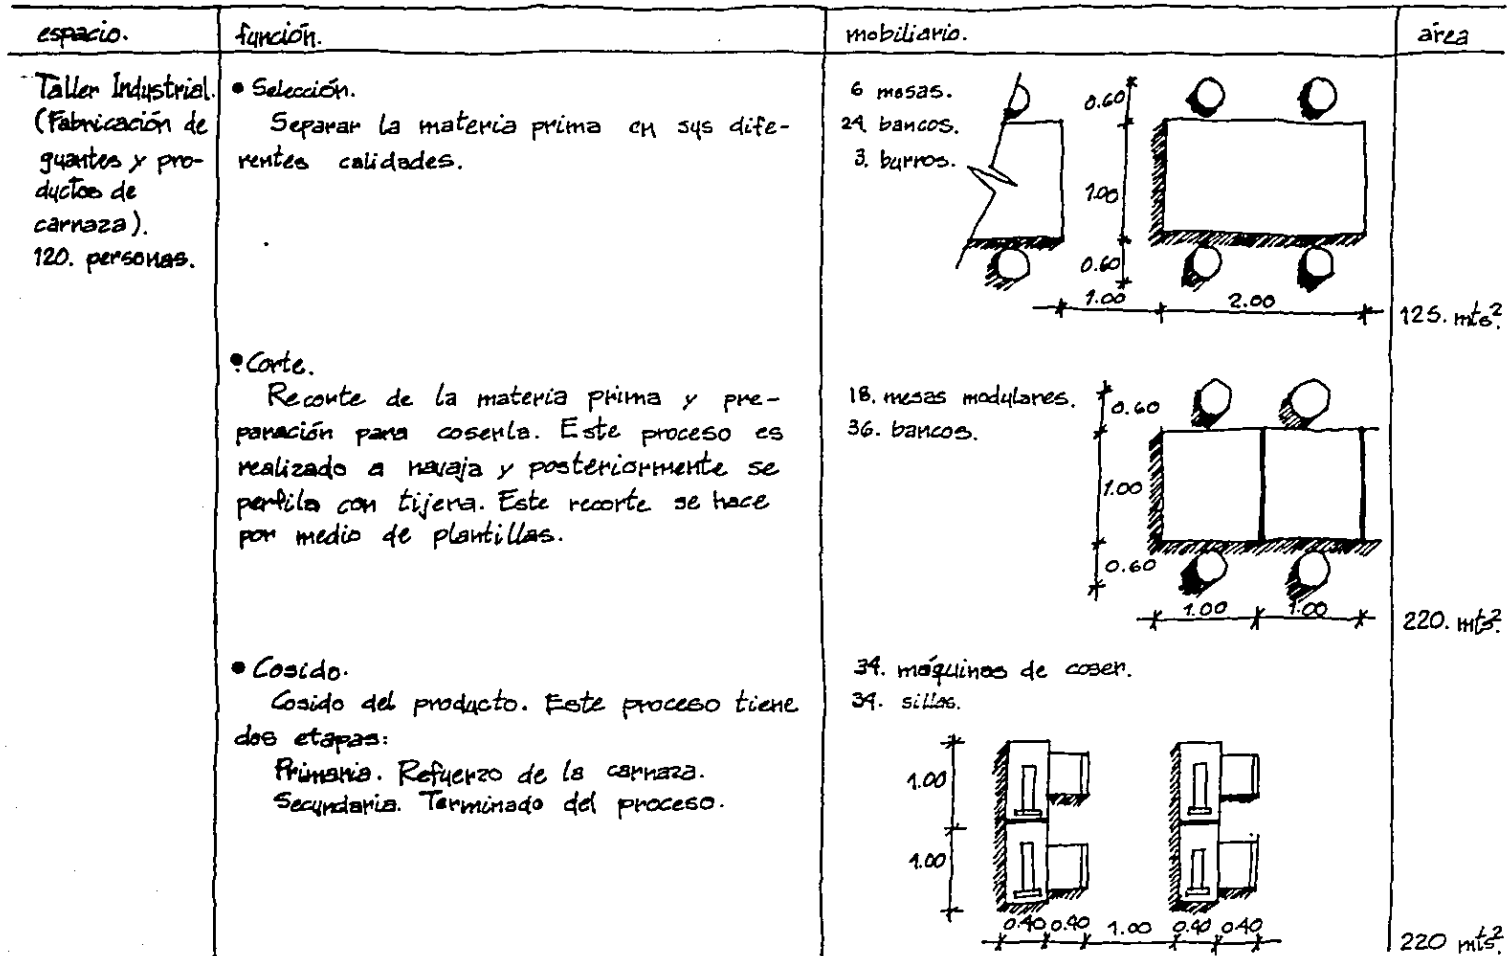 espacio. función. mobiliario. área
Taller Industrial.
(Fabricación de
guantes y pro-
ductos de
carnaza).
120. personas.
• Selección.
Separar la materia prima en sus dife-
rentes calidades.
6 mesas.
24. bancos.
3. burros.
0.60
1.00
0.60
1.00 2.00
125. mts².
• Corte.
Recorte de la materia prima y pre-
paración para coserla. Este proceso es
realizado a navaja y posteriormente se
perfila con tijera. Este recorte se hace
por medio de plantillas.
18. mesas modulares.
36. bancos.
0.60
1.00
0.60
1.00 1.00
220. mts².
• Cosido.
Cosido del producto. Este proceso tiene
dos etapas:
Primaria. Refuerzo de la carnaza.
Secundaria. Terminado del proceso.
34. máquinas de coser.
34. sillas.
1.00
1.00
0.40 0.40 1.00 0.40 0.40
220 mts².